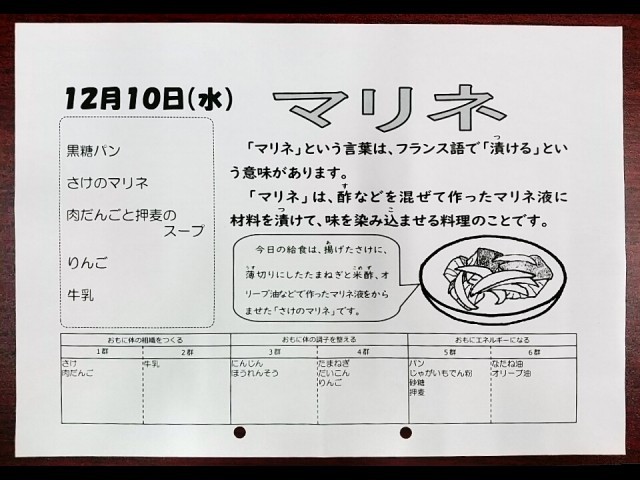 12月10日(水)
マリネ
黒糖パン
さけのマリネ
肉だんごと押麦の
スープ
りんご
牛乳
「マリネ」という言葉は、フランス語で「漬ける」とい
う意味があります。
「マリネ」は、酢などを混ぜて作ったマリネ液に
材料を漬けて、味を染み込ませる料理のことです。
今日の給食は、揚げたさけに、
薄切りにしたたまねぎと米酢、オ
リーブ油などで作ったマリネ液をから
ませた「さけのマリネ」です。
おもに体の組織をつくる おもに体の調子を整える おもにエネルギーになる
1群 2群 3群 4群 5群 6群
さけ 牛乳 にんじん たまねぎ パン なたね油
肉だんご ほうれんそう だいこん じゃがいもでん粉 オリーブ油
りんご 砂糖
押麦